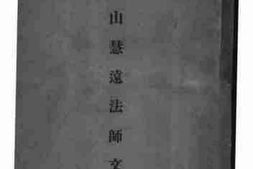 山慧遠法師文